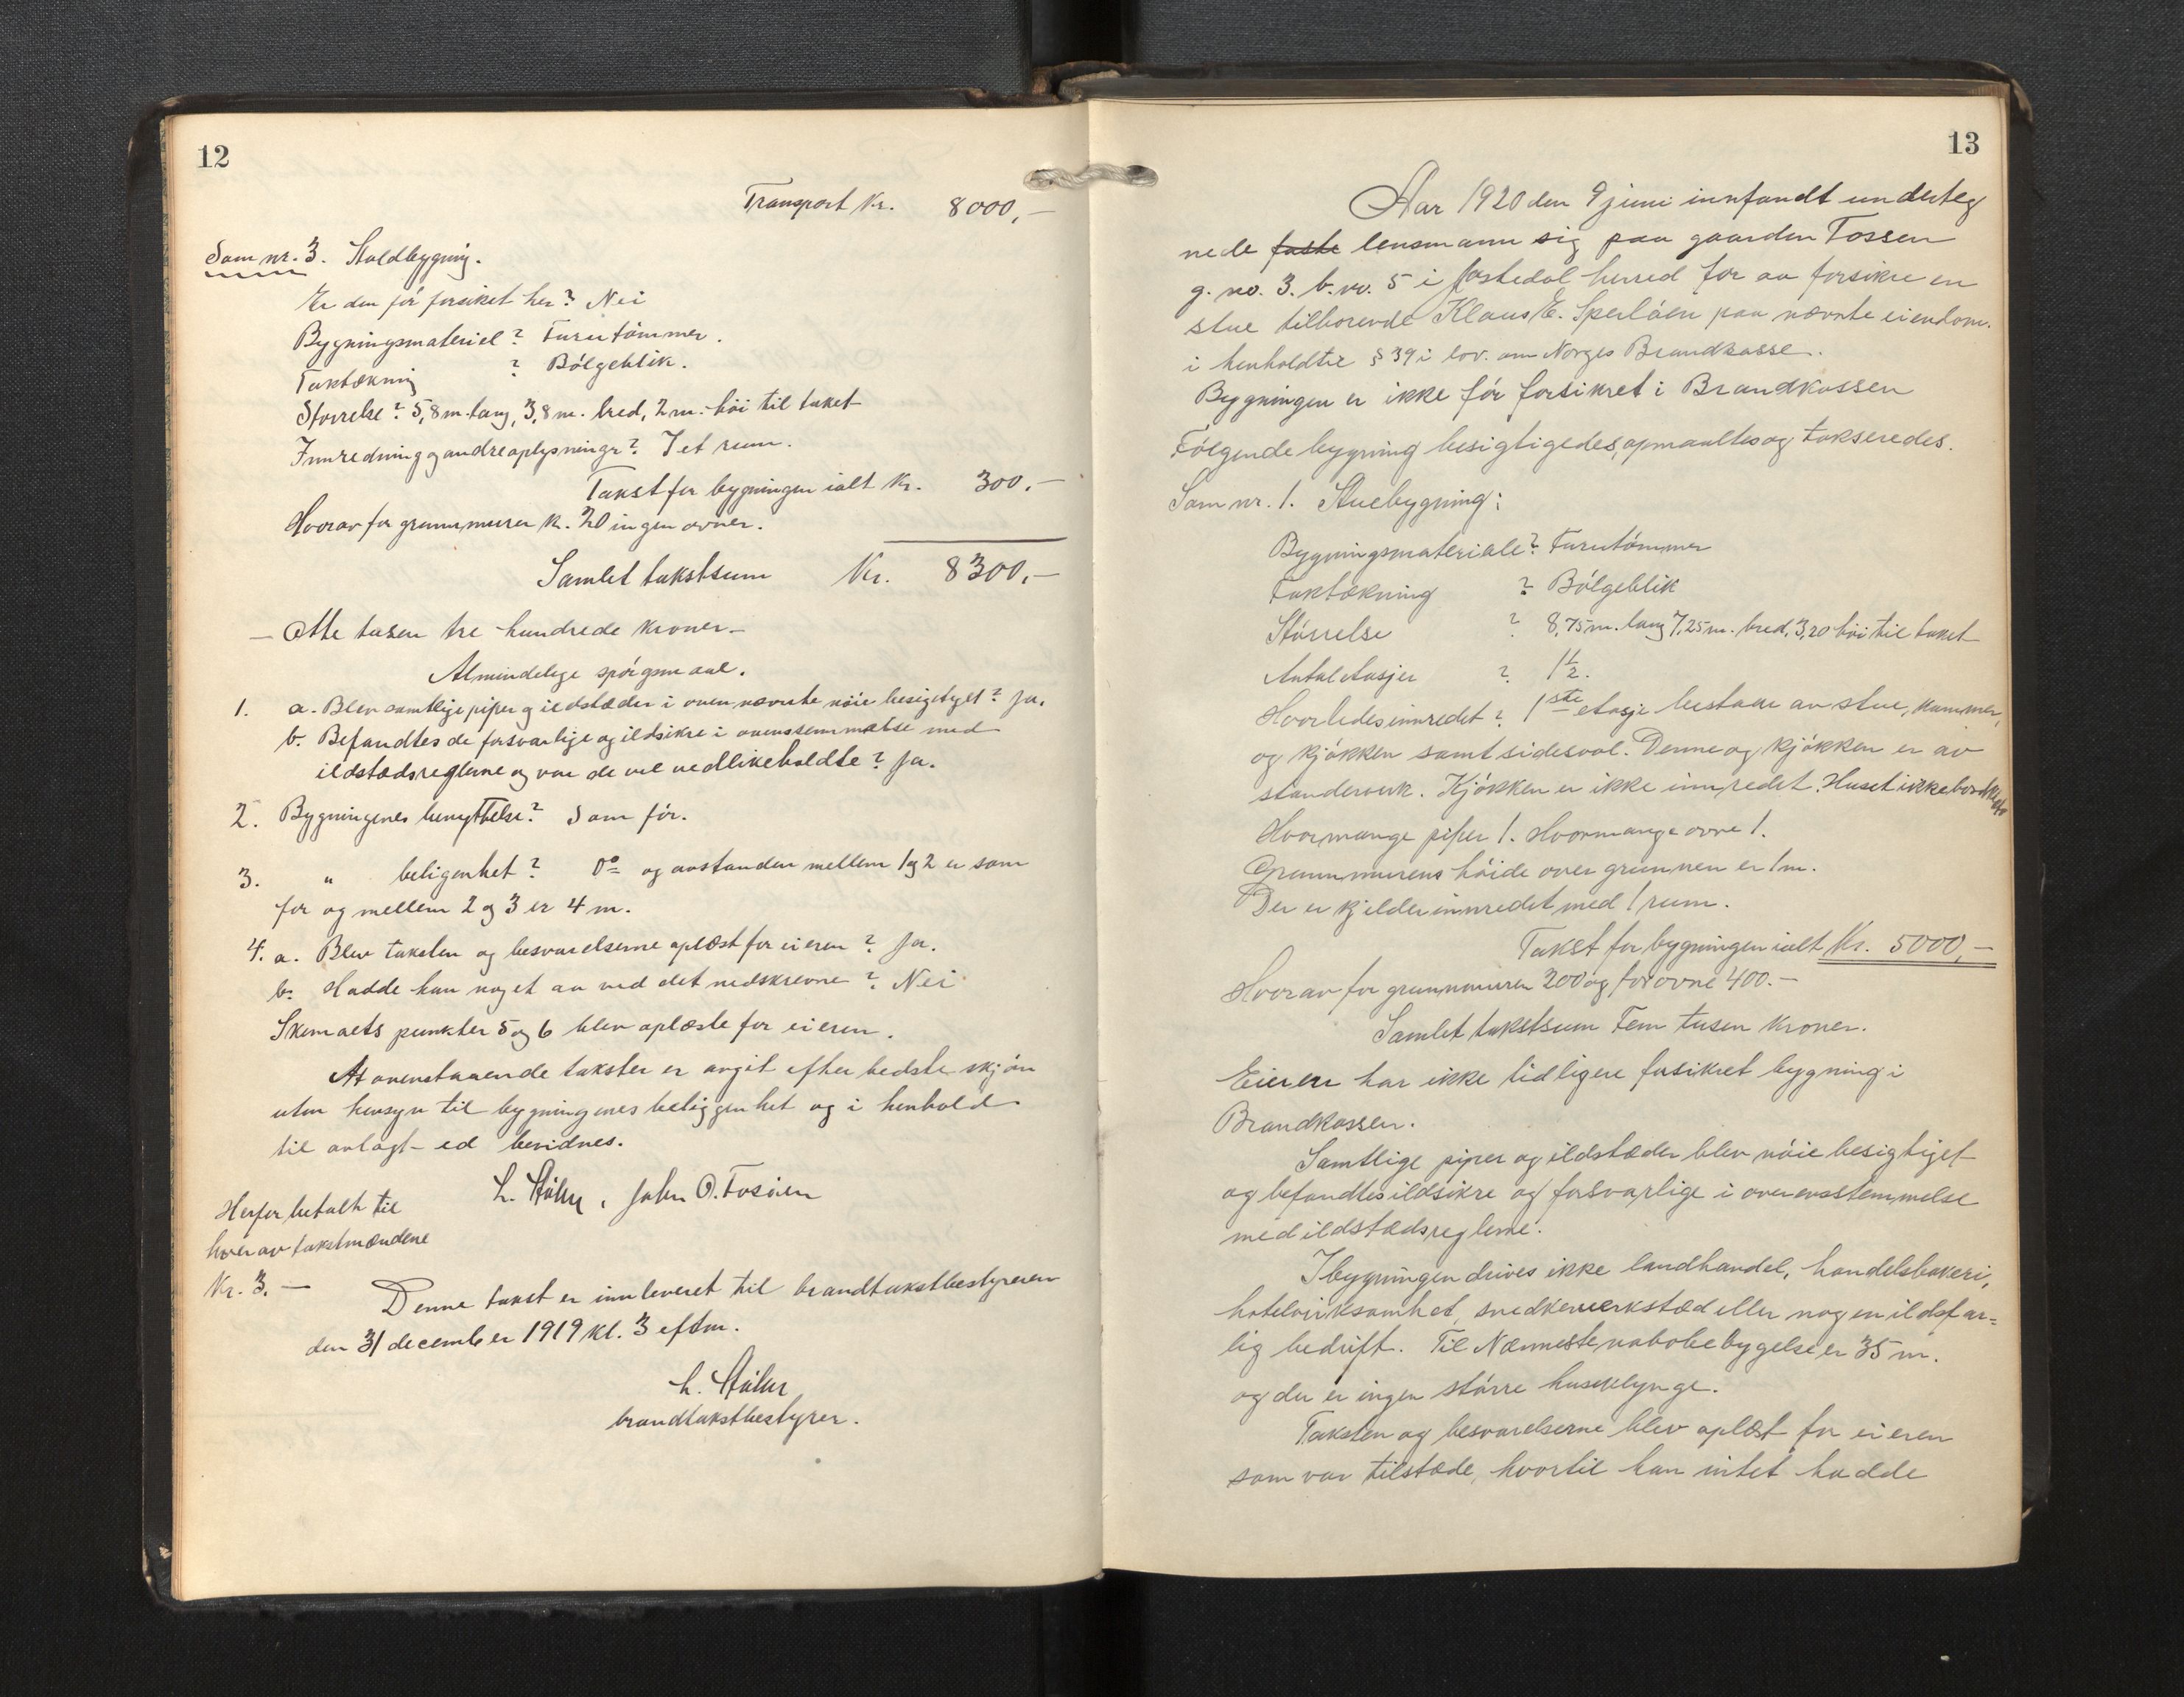 12
Transport Kr. 8000,-
Som nr. 3. Staldbygning.
Er den før forsikret her? Nei
Bygningsmateriel? Furutømmer.
Taktækning ? Bølgeblik.
Størrelse? 5,8 m. lang, 3,8 m. bred, 2 m. høi til taket
Innredning og andre oplysninger? I et rum.
Takst for bygningen ialt Kr. 300.-
Hvorav for grunnmuren kr. 20 ingen ovner.
Samlet takstsum Kr. 8300,-
- Otte tusen tre hundrede kroner -
Almindelige spørgsmaal.
1. a. Blev samtlige piper og ildstæder i ovennævnte nøie besigtyget? Ja.
b. Befandtes de forsvarlige og ildsikre i overensstemmelse med
ildstædsreglerne og var de vel vedlikeholdte? Ja.
2. Bygningenes benyttelse? Som før.
3. " beligenhet? Do og avstanden mellem 1 og 2 er som
før og mellem 2 og 3 er 4 m.
4. a. Blev taksten og besvarelserne oplæst for eieren? Ja.
b. Hadde han noget aa ved det nedskrevne? Nei
Skemaets punkter 5 og 6 blev oplæste for eieren.
At ovenstaaende takster er avgit efter bedste skjøn
uten hensyn til bygningenes beliggenhet og i henhold
til avlagt ed bevidnes.
L. Stølen, John O. Fosøien
Herfor betalt til
hver av takstmændene
Kr. 3.-
Denne takst er innleveret til brandtakstbestyreren
den 31 december 1919 kl. 3 eftm.
L. Stølen
brandtakstbestyrer.
13
Aar 1920 den 9 juni innfandt underteg
nede faste lensmann sig paa gaarden Fossen
g. no. 3. b. no. 5 i Jostedal herred for aa forsikre en
stue tilhorende Klaus E. Sperløen paa nævnte eiendom.
i henhold til § 39 i lov. om Norges Brandkasse.
Bygningen er ikke før forsikret i Brandkassen
Følgende bygning besigtigedes, opmaaltes og takseredes.
Som nr. 1. Stuebygning:
Bygningsmateriale? Furutømmer
Taktækning ? Bølgeblik
Størrelse ? 8,75 m. lang 7,25 m. bred, 3,20 høi til taket
Antal etasjer ? 1½.
Hvorledes innredet? 1ste etasje bestaar av stue, kammer,
og kjøkken samt sidesval. Denne og kjøkken er av
standerverk. Kjøkken er ikke innredet. Huset ikke bordklædt
Hvormange piper 1. Hvormange ovne 1.
Grunnmurens høide over grunnen er 1 m.
Der er kjelder innredet med 1 rum.
Takst for bygningen ialt Kr. 5000,-
Hvorav for grunnmuren 200 og for ovne 400.-
Samlet takstsum Fem tusen kroner.
Eieren har ikke tidligere forsikret bygning i
Brandkassen.
Samtlige piper og ildstæder blev nøie besigtiget
og befandtes ildsikre og forsvarlige i overensstemmelse
med ildstædsreglerne.
I bygningen drives ikke landhandel, handelsbakeri,
hotelvirksomhet, snedkerverkstæd eller nogen ildsfar=
lig bedrift. Til Nærmeste nabobebygelse er 35 m.
og der er ingen større husklynge.
Taksten og besvarelserne blev oplæst for eieren
som var tilstæde, hvortil han intet hadde